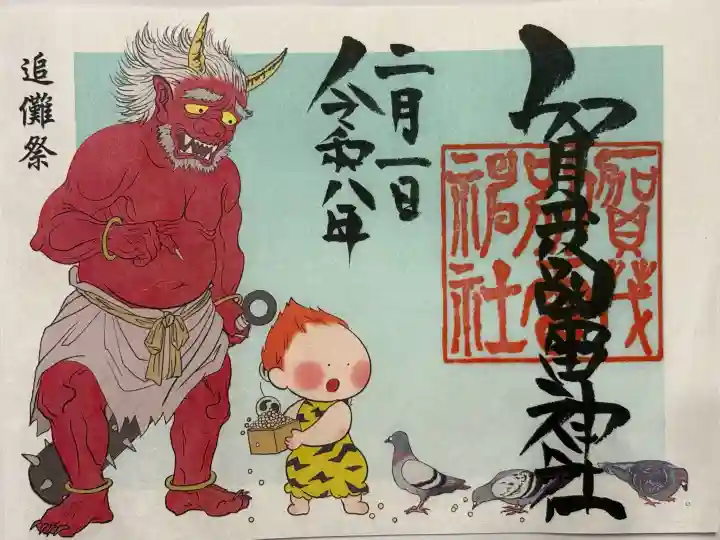 賀茂別雷神社
賀茂
別雷
神社
二月一日
令和八年
追儺祭